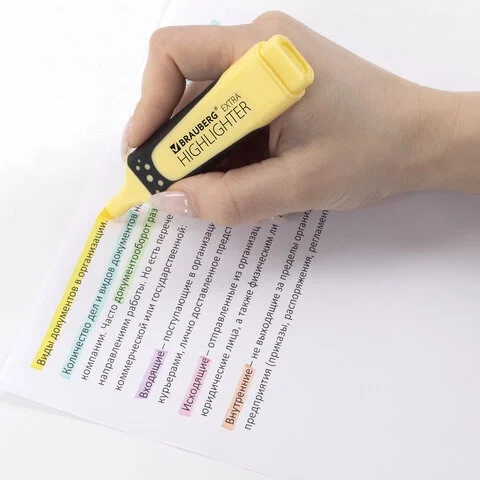 BRAUBERG® EXTRA
HIGHLIGHTER
Виды документов в организации.
Количество дел и видов документов на
компании. Часто документооборот раз
направлениям работы. Но есть перече
коммерческой или государственной:
Входящие – поступающие в организаци
курьерами, лично доставленное предст
Исходящие – отправленные из организац
юридические лица, а также физическим ли
Внутренние – не выходящие за пределы органи
предприятия (приказы, распоряжения, регламен